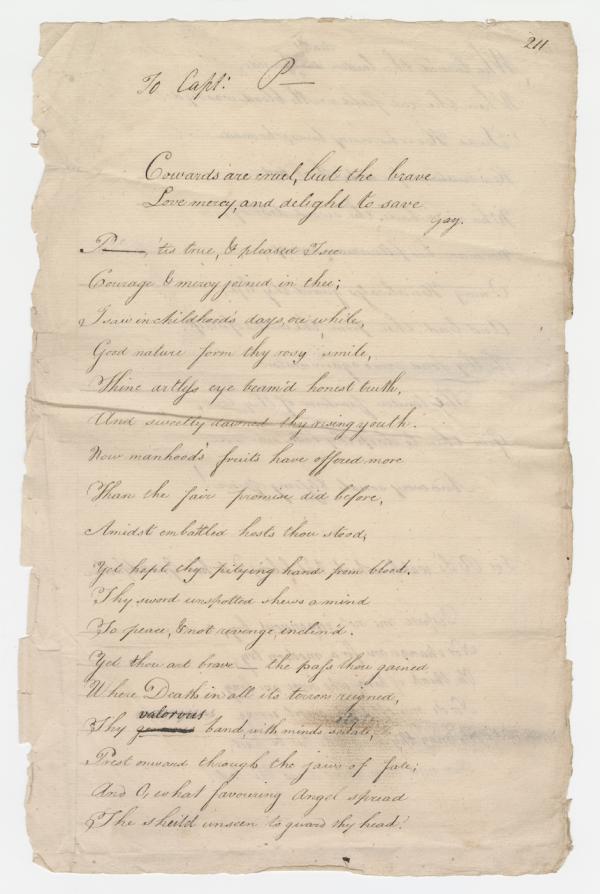 211
To Capt: P—
Cowards are cruel, but the brave
Love mercy, and delight to save
Gay.
P—, 'tis true, & pleased I see
Courage & mercy joined in thee;
I saw in childhood's days, ere while,
Good nature form thy rosy smile,
Thine artless eye beam'd honest truth,
And sweetly dawned thy rising youth.
Now manhoods' fruits have offered more
Than the fair promise did before,
Amidst embattled hosts thou stood,
Yet kept thy pitying hand from blood.
Thy sword unspotted shews a mind
To peace, & not revenge, inclin'd.
Yet thou art brave — the pass thou gained
Where Death in all its terrors reigned,
valorous
Thy band, with minds sedate,
Prest onward through the jaws of fate;
And O, what favouring Angel spread
The sheild unseen to guard thy head?